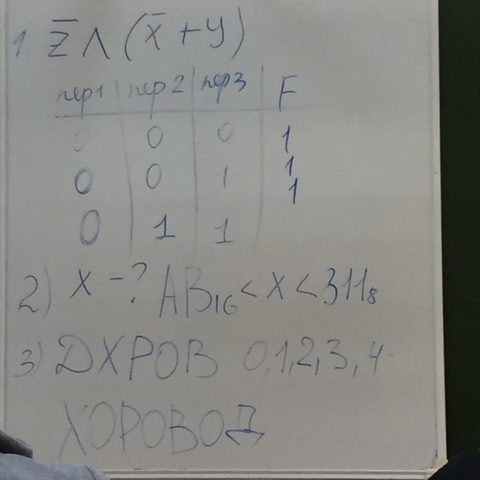 1) z̄ ∧ (x̄ + y)
пер1 пер2 пер3 F
0 0 0 1
0 0 1 1
0 1 1 1
2) x - ? AB₁₆ < x < 311₈
3) ДХРОВ 0,1,2,3,4
ХОРОВОД